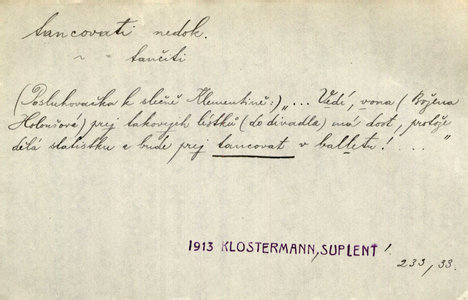 tancovati nedok.
~ ~ tančiti
(Posluhovačka k slečně Klementině:) „... Vědí, vona (Božena
Holoušová) prej takových lístků (do divadla) má dost, protože
dělá statistku a bude prej tancovat v balletu! ..."
1913 KLOSTERMANN, SUPLENT!
233, 33.